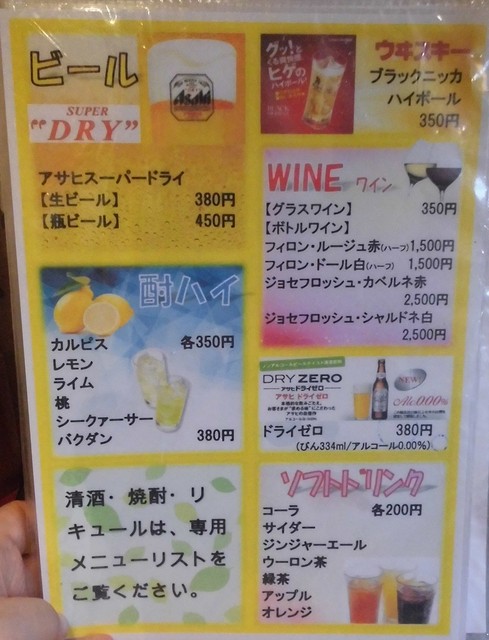 ビール
Asahi
SUPER
"DRY"
アサヒスーパードライ
【生ビール】 380円
【瓶ビール】 450円
酎ハイ
カルピス 各350円
レモン
ライム
桃
シークァーサー
バクダン 380円
清酒・焼酎・リ
キュールは、専用
メニューリストを
ご覧ください。
グッ!と
くる爽快感
ヒゲの
ハイボール!
ウヰスキー
ブラックニッカ
ハイボール
350円
WINE ワイン
【グラスワイン】 350円
【ボトルワイン】
フィロン・ルージュ赤(ハーフ) 1,500円
フィロン・ドール白(ハーフ) 1,500円
ジョセフロッシュ・カベルネ赤
2,500円
ジョセフロッシュ・シャルドネ白
2,500円
DRY ZERO
アサヒドライゼロ
アサヒ ドライゼロ
NEW
Alc.0.00%
ドライゼロ 380円
(びん334ml/アルコール0.00%)
ソフトドリンク
コーラ 各200円
サイダー
ジンジャーエール
ウーロン茶
緑茶
アップル
オレンジ